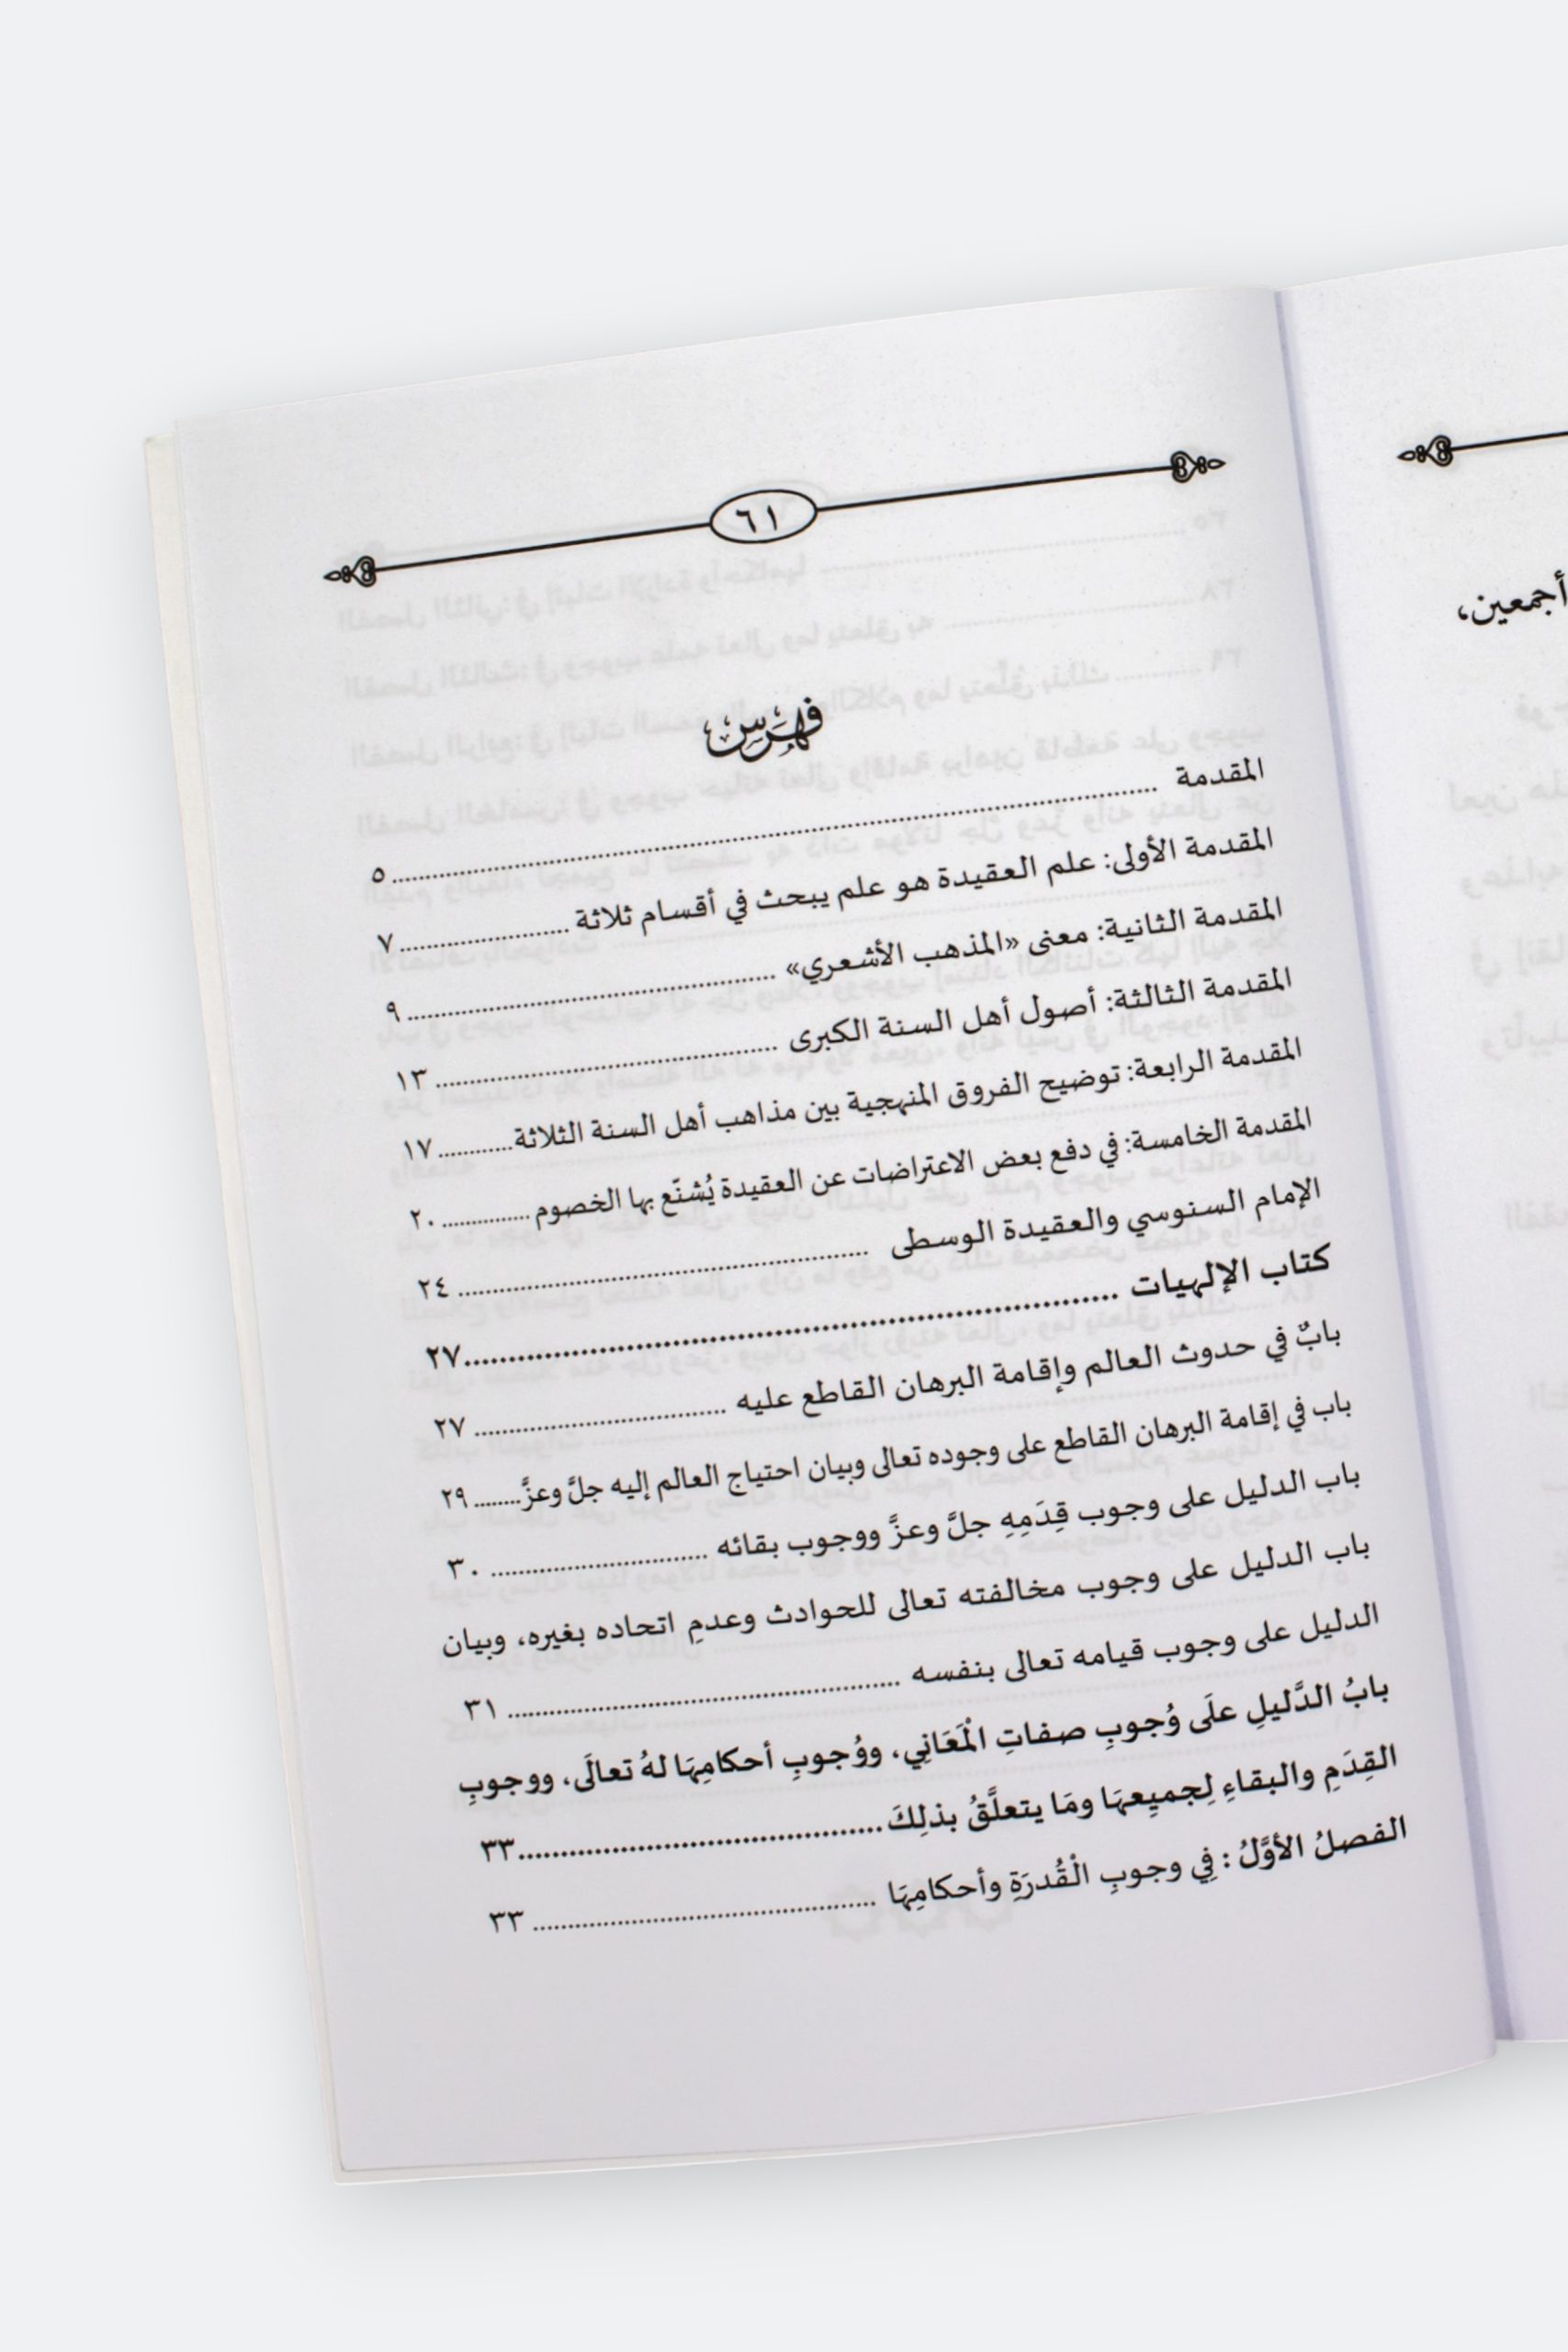 ٦١
فهرس
المقدمة ........ ٥
المقدمة الأولى: علم العقيدة هو علم يبحث في أقسام ثلاثة ........ ٧
المقدمة الثانية: معنى «المذهب الأشعري» ........ ٩
المقدمة الثالثة: أصول أهل السنة الكبرى ........ ١٣
المقدمة الرابعة: توضيح الفروق المنهجية بين مذاهب أهل السنة الثلاثة ........ ١٧
المقدمة الخامسة: في دفع بعض الاعتراضات عن العقيدة يُشنّع بها الخصوم ........ ٢٠
الإمام السنوسي والعقيدة الوسطى ........ ٢٤
كتاب الإلهيات ........ ٢٧
بابٌ في حدوث العالم وإقامة البرهان القاطع عليه ........ ٢٧
باب في إقامة البرهان القاطع على وجوده تعالى وبيان احتياج العالم إليه جلَّ وعزَّ ........ ٢٩
باب الدليل على وجوب قِدَمِهِ جلَّ وعزَّ ووجوب بقائه ........ ٣٠
باب الدليل على وجوب مخالفته تعالى للحوادث وعدمِ اتحاده بغيره، وبيان
الدليل على وجوب قيامه تعالى بنفسه ........ ٣١
بابُ الدَّليلِ علَى وُجوبِ صفاتِ الْمَعَانِي، ووُجوبِ أحكامِهَا لهُ تعالَى، ووجوبِ
القِدَمِ والبقاءِ لِجميِعهَا ومَا يتعلَّقُ بذلِكَ ........ ٣٣
الفصلُ الأوَّلُ: فِي وجوبِ الْقُدرَةِ وأحكامِهَا ........ ٣٣
أجمعين،